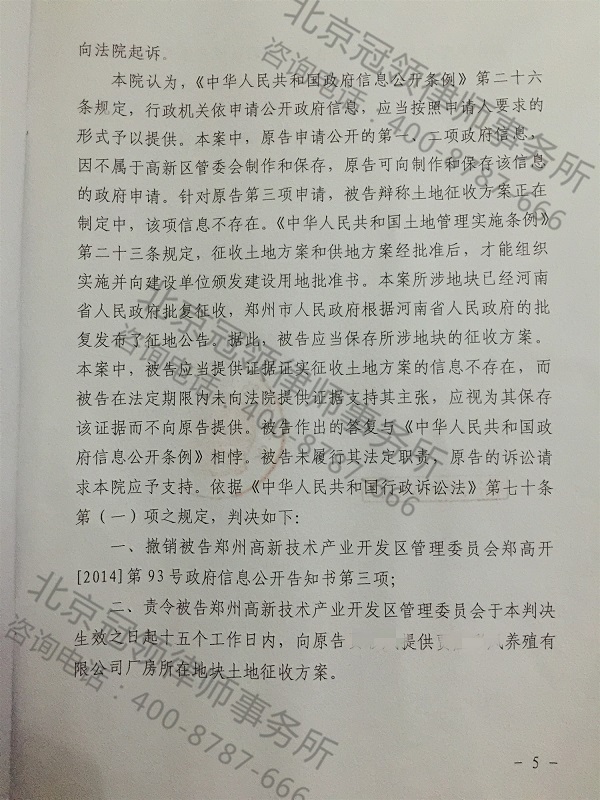 向法院起诉。
本院认为，《中华人民共和国政府信息公开条例》第二十六
条规定，行政机关依申请公开政府信息，应当按照申请人要求的
形式予以提供。本案中，原告申请公开的第一、二项政府信息，
因不属于高新区管委会制作和保存，原告可向制作和保存该信息
的政府申请。针对原告第三项申请，被告辩称土地征收方案正在
制定中，该项信息不存在。《中华人民共和国土地管理实施条例》
第二十三条规定，征收土地方案和供地方案经批准后，才能组织
实施并向建设单位颁发建设用地批准书。本案所涉地块已经河南
省人民政府批复征收，郑州市人民政府根据河南省人民政府的批
复发布了征地公告。据此，被告应当保存所涉地块的征收方案。
本案中，被告应当提供证据证实征收土地方案的信息不存在，而
被告在法定期限内未向法院提供证据支持其主张，应视为其保存
该证据而不向原告提供。被告作出的答复与《中华人民共和国政
府信息公开条例》相悖。被告未履行其法定职责，原告的诉讼请
求本院应予支持。依据《中华人民共和国行政诉讼法》第七十条
第（一）项之规定，判决如下：
一、撤销被告郑州高新技术产业开发区管理委员会郑高开
[2014]第93号政府信息公开告知书第三项；
二、责令被告郑州高新技术产业开发区管理委员会于本判决
生效之日起十五个工作日内，向原告 提供 养殖有
限公司厂房所在地块土地征收方案。
- 5 -
北京冠领律师事务所
咨询电话：400-8787-666
北京冠领律师事务所
咨询电话：400-8787-666
北京冠领律师事务所
咨询电话：400-8787-666